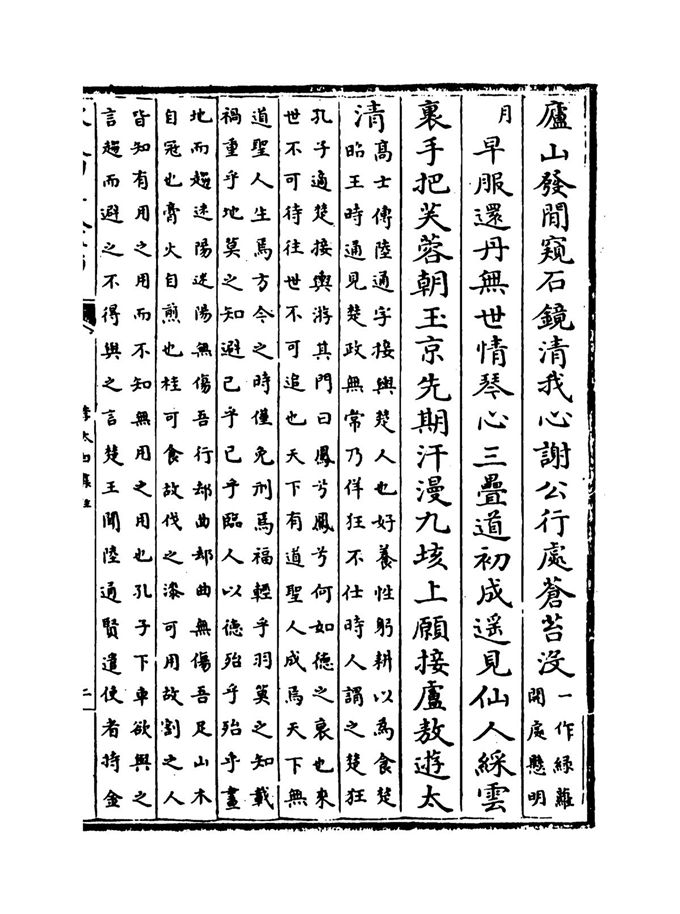 廬山發閒窺石鏡清我心謝公行處蒼苔没一作緑蘿
開處懸明
月早服還丹無世情琴心三疊道初成遥見仙人綵雲
裏手把芙蓉朝玉京先期汗漫九垓上願接盧敖遊太
清高士傳陸通字接輿楚人也好養性躬耕以為食楚
昭王時通見楚政無常乃佯狂不仕時人謂之楚狂
孔子適楚接輿游其門曰鳳兮鳳兮何如德之衰也來
世不可待往世不可追也天下有道聖人成焉天下無
道聖人生焉方今之時僅免刑焉福輕乎羽莫之知載
禍重乎地莫之知避已乎已乎臨人以德殆乎殆乎畫
地而趨迷陽迷陽無傷吾行却曲却曲無傷吾足山木
自冦也膏火自煎也桂可食故伐之漆可用故割之人
皆知有用之用而不知無用之用也孔子下車欲與之
言趨而避之不得與之言楚王聞陸通賢遣使者持金
李太白集注
二